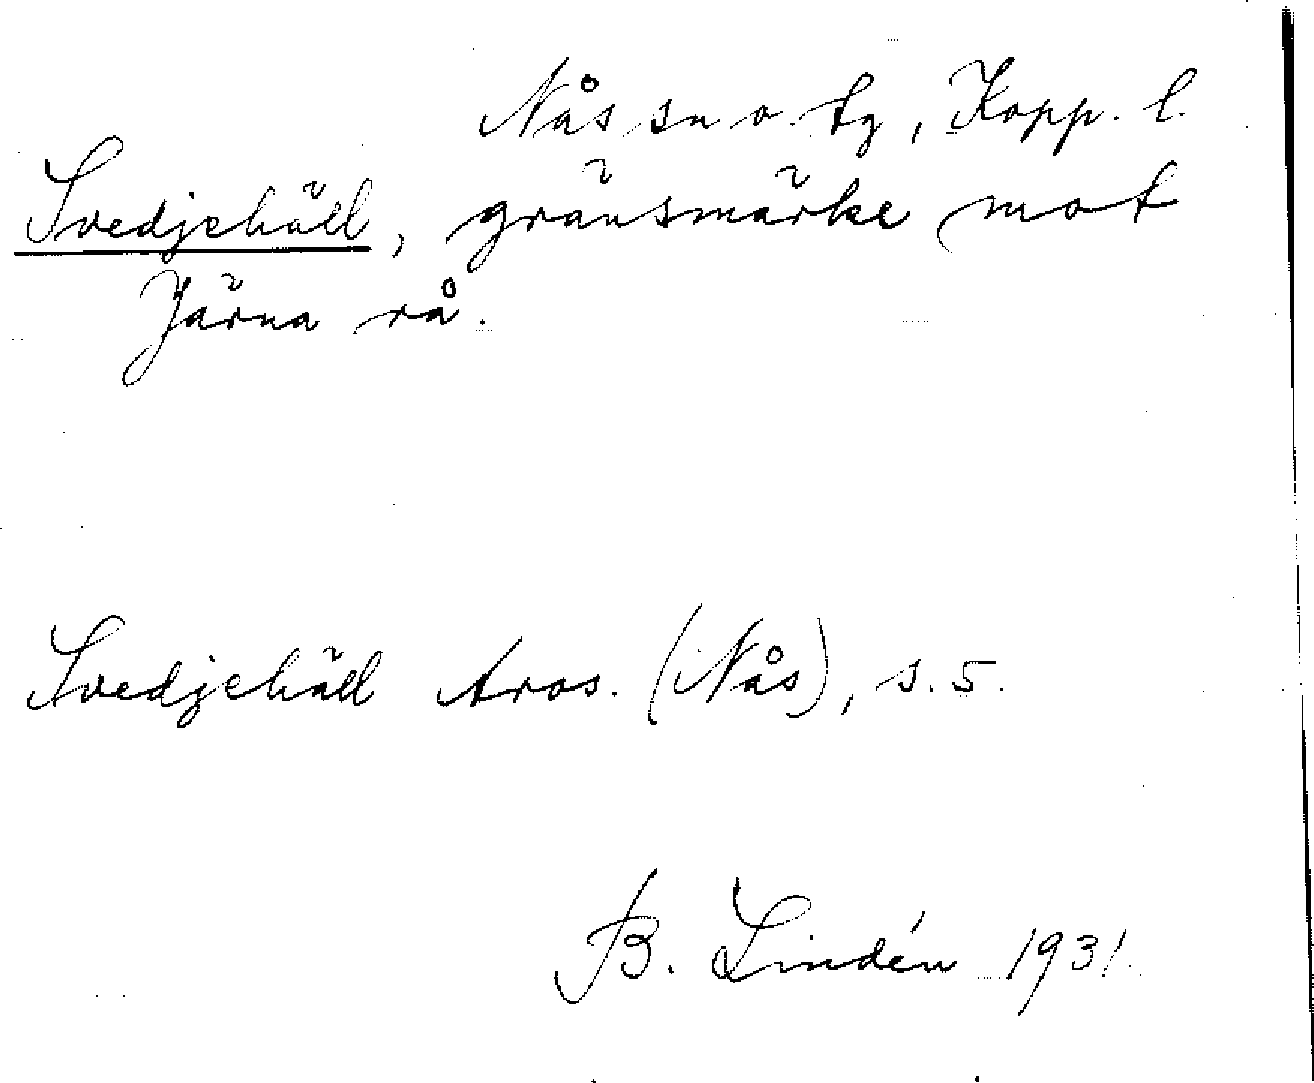 Nås sn o. tg, Kopp. l.
Svedjehäll, gränsmärke mot
Järna rå.
Svedjehäll Aros. (Nås), s. 5.
B. Lindén 1931.